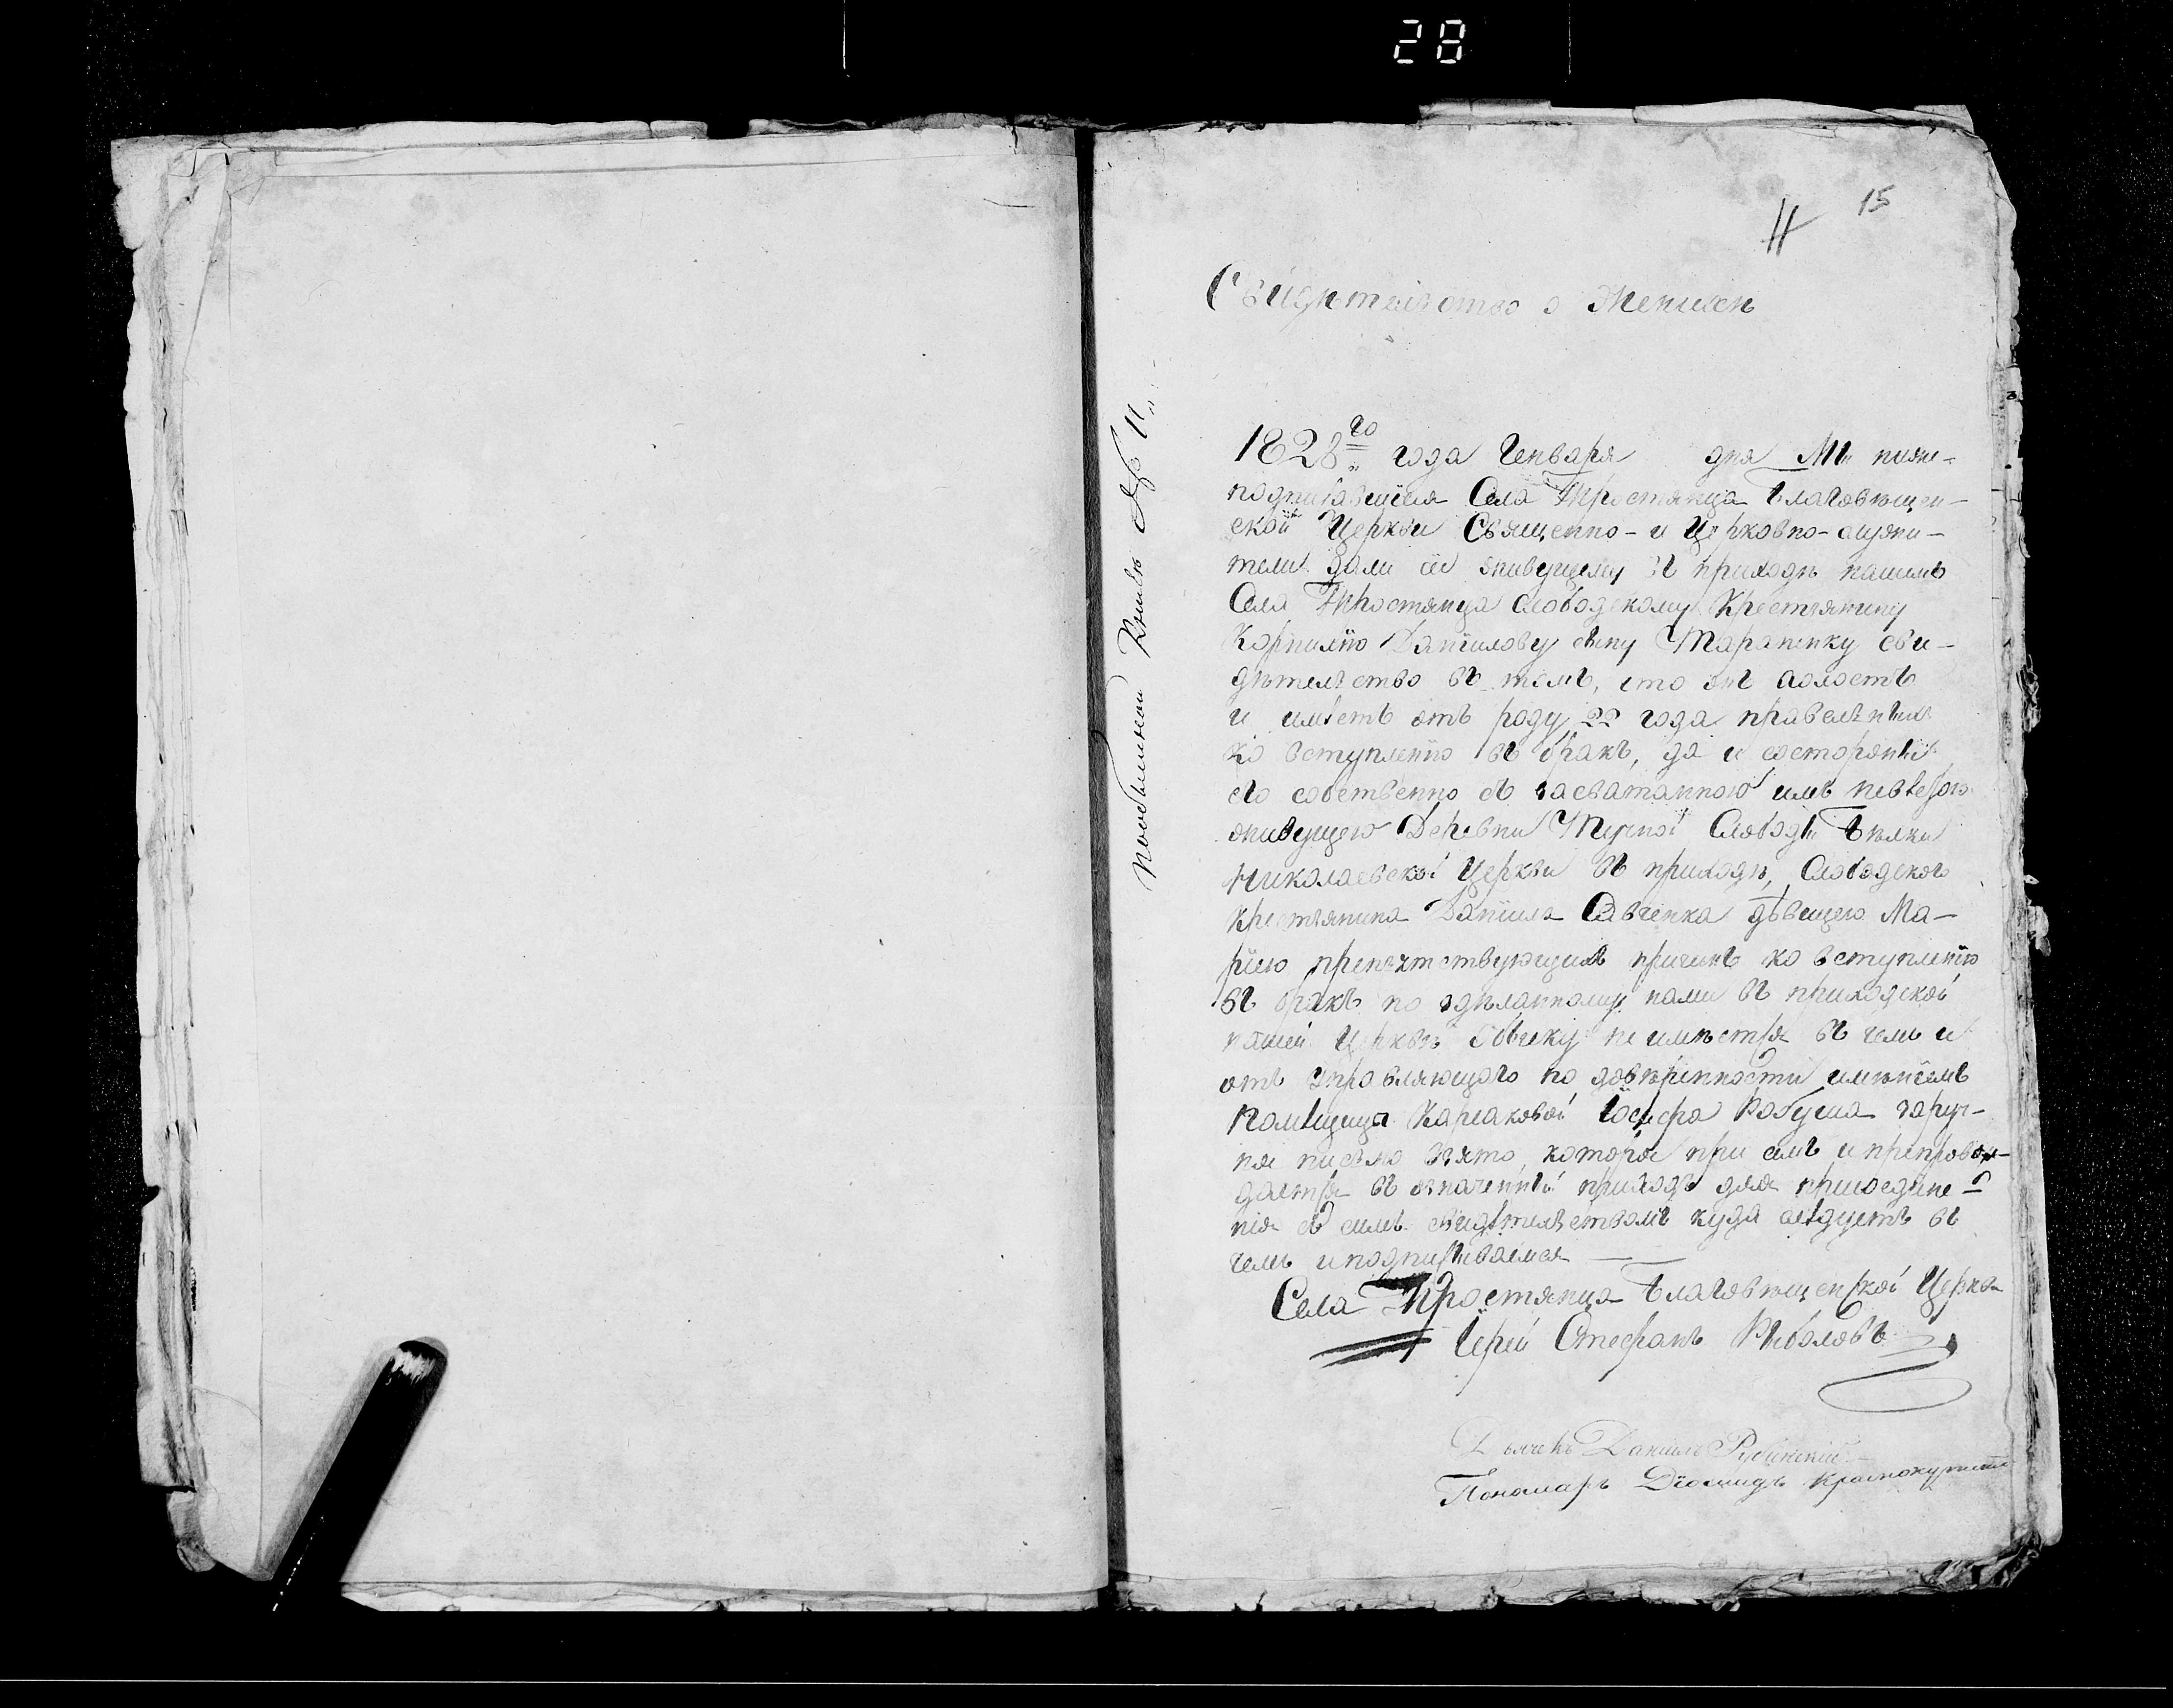 28
15
Свидѣтельство о Женихѣ
1828го года Генваря дня Мы ниже-
подписавшіеся Села Тростянца Благовѣщен-
ской Церкви Священно- и Церковно-служи-
тели дали сіе живущему въ приходѣ нашемъ
Села Тростянца слободскому Крестьянину
Корнилію Даніилову сыну Тараненку сви-
дѣтельство въ томъ, что онъ холостъ
и имѣетъ отъ роду 22 года
ко вступленію въ бракъ, да и состороны
его собственно съ засватанною имъ невѣстою
живущею Деревни Тучной Слободы Бѣлки
Николаевской Церкви въ приходѣ, Слободского
крестьянина Даніила Савченка дѣвицею Ма-
ріею препятствующихъ причинъ ко вступленію
въ бракъ по здѣланному нами въ приходской
нашей Церквѣ обыску не имѣется въ чемъ и
отъ управляющаго по довѣренности имѣніемъ
Помѣщицы Корсаковой Іосифа заруч-
ное письмо взято, которое при семъ и препровож-
дается въ означенный приходъ для присоедине-
нія съ симъ свидѣтельствомъ куда слѣдуетъ въ
чемъ и подписываемся
Села Тростянца Благовѣщенской Церкви
Іерей Стефанъ Рыболовъ
Дьячекъ Даніилъ Рубинскій
Пономарь Діомидъ